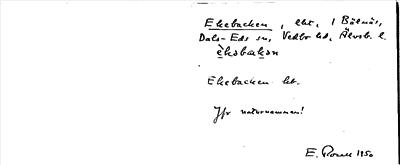 Ekebacken, lht, i Bölnäs,
Dals-Eds sn, Vedbo hd, Älvsb. l.
èkəbakən
Ekebacken ht.
Jfr naturnamnen!
E. 1950